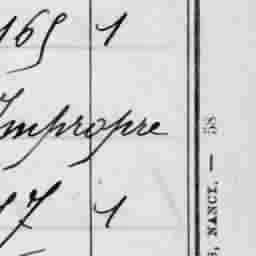 165 1
Impropre
17 1
S, NANCY. — 58